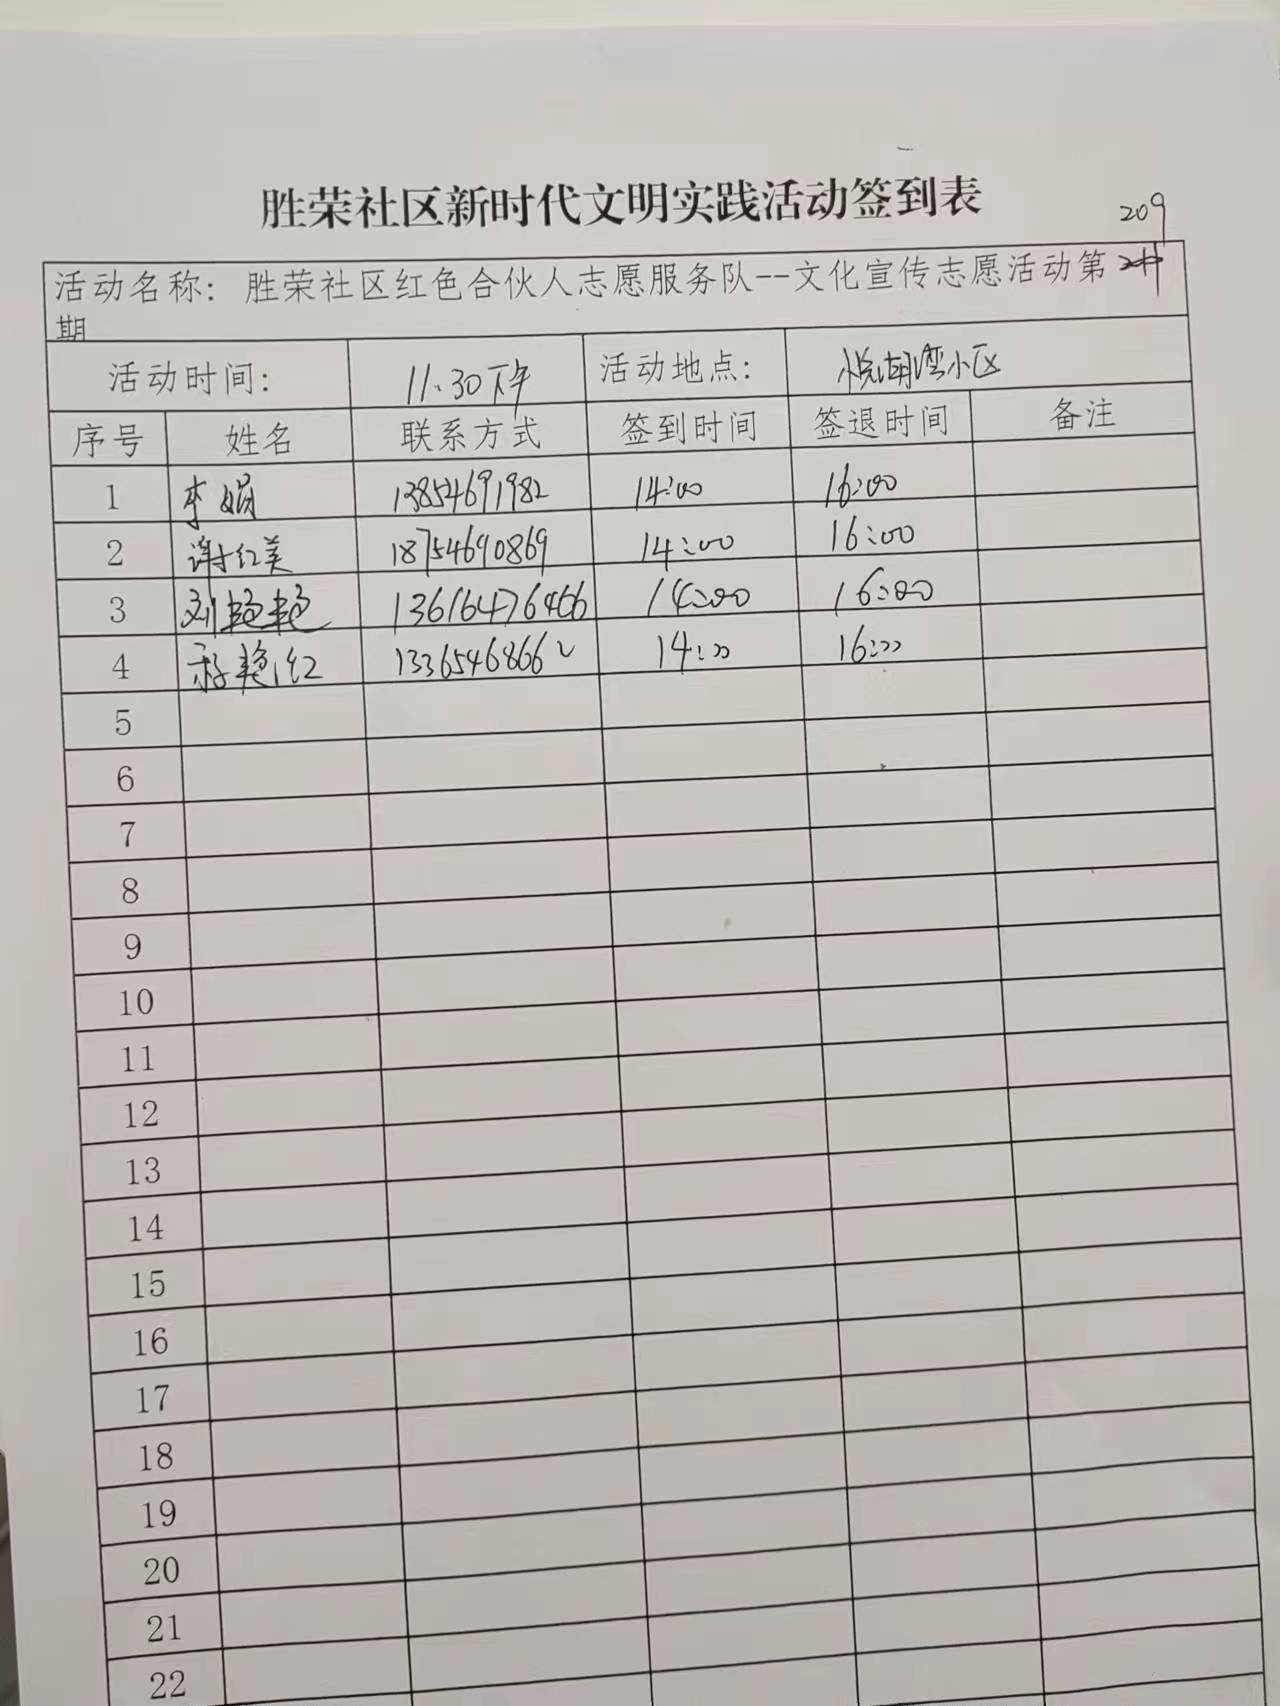 胜荣社区新时代文明实践活动签到表
209
活动名称：胜荣社区红色合伙人志愿服务队--文化宣传志愿活动第
期
活动时间： 11.30下午 活动地点： 悦湖湾小区
序号 姓名 联系方式 签到时间 签退时间 备注
1 李娟 13854691982 14:00 16:00
2 谢红美 18754690869 14:00 16:00
3 刘艳艳 13616476466 14:00 16:00
4 艳红 13365468662 14:00 16:00
5
6
7
8
9
10
11
12
13
14
15
16
17
18
19
20
21
22